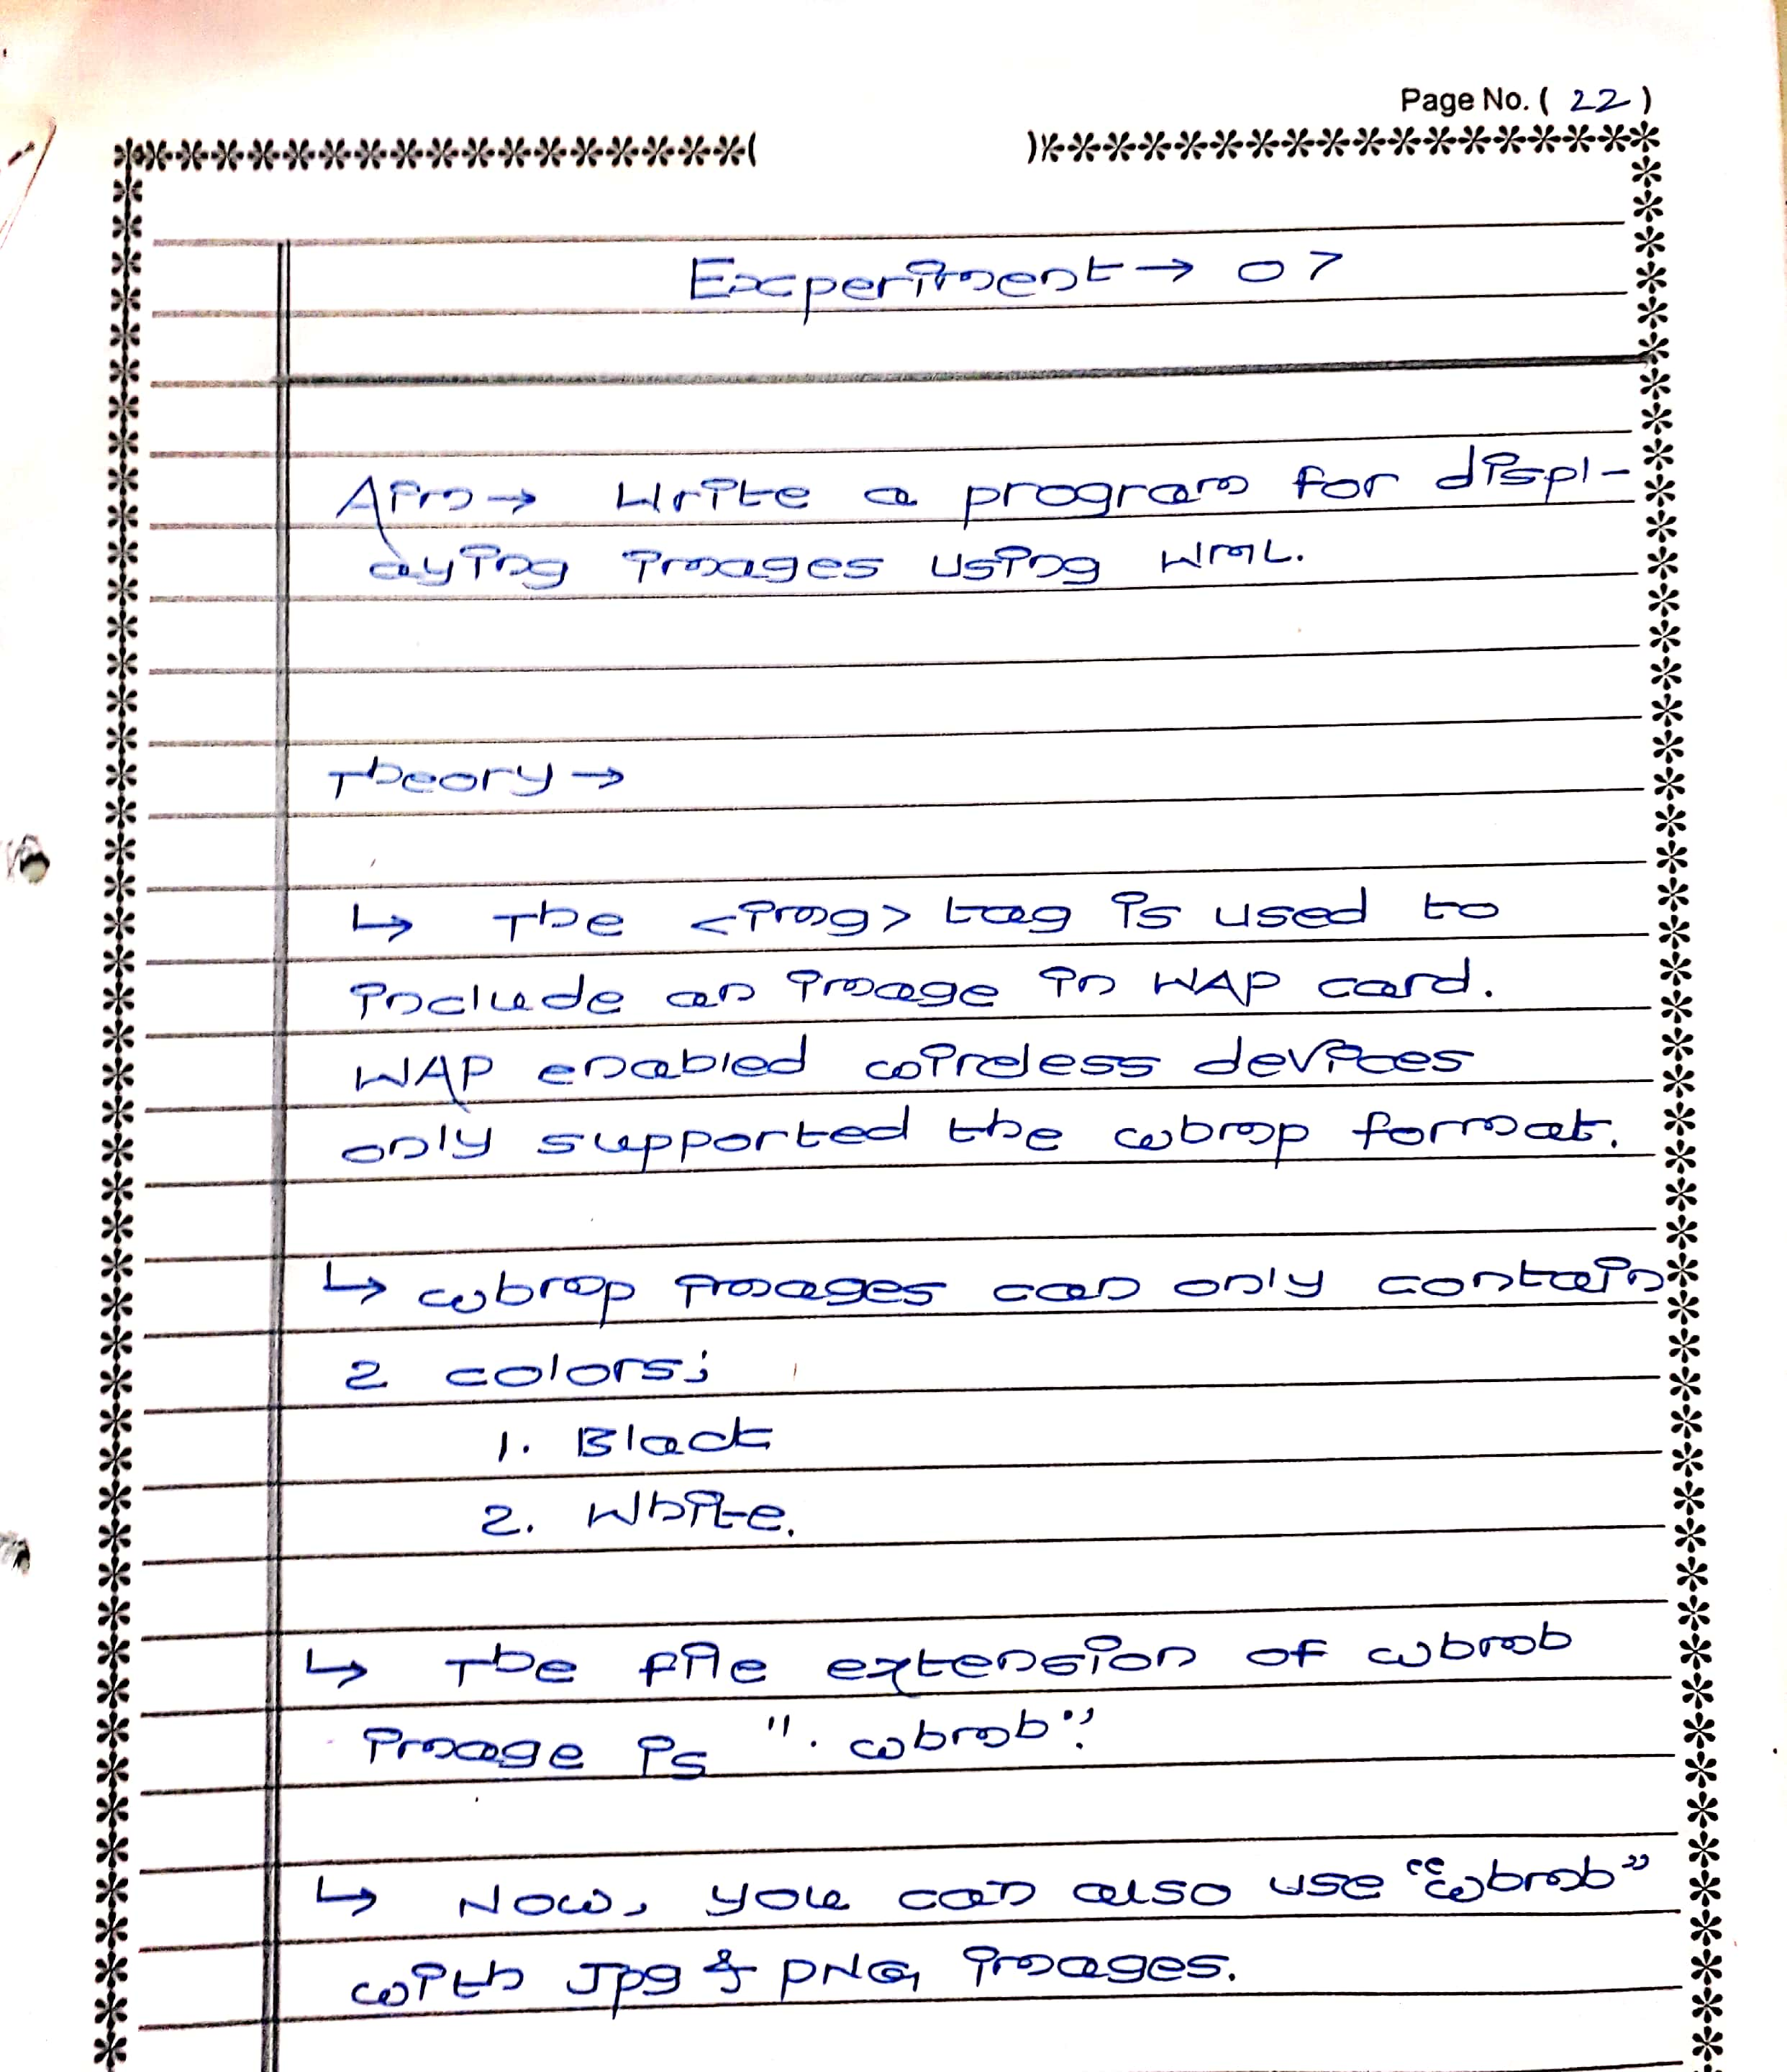 Page No. ( 22 )
Experiment → 07
Aim → Write a program for displ-
aying images using WML.
Theory →
↳ The <img> tag is used to
include an image in WAP card.
WAP enabled wireless devices
only supported the wbmp format.
↳ wbmp images can only contain
2 colors;
1. Black
2. White.
↳ The file extension of wbmb
image is ". wbmb".
↳ Now, you can also use "wbmb"
with Jpg & PNG images.